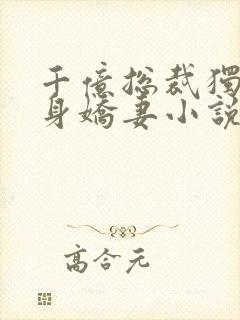 千億總裁獨
身嬌妻小說
高合元